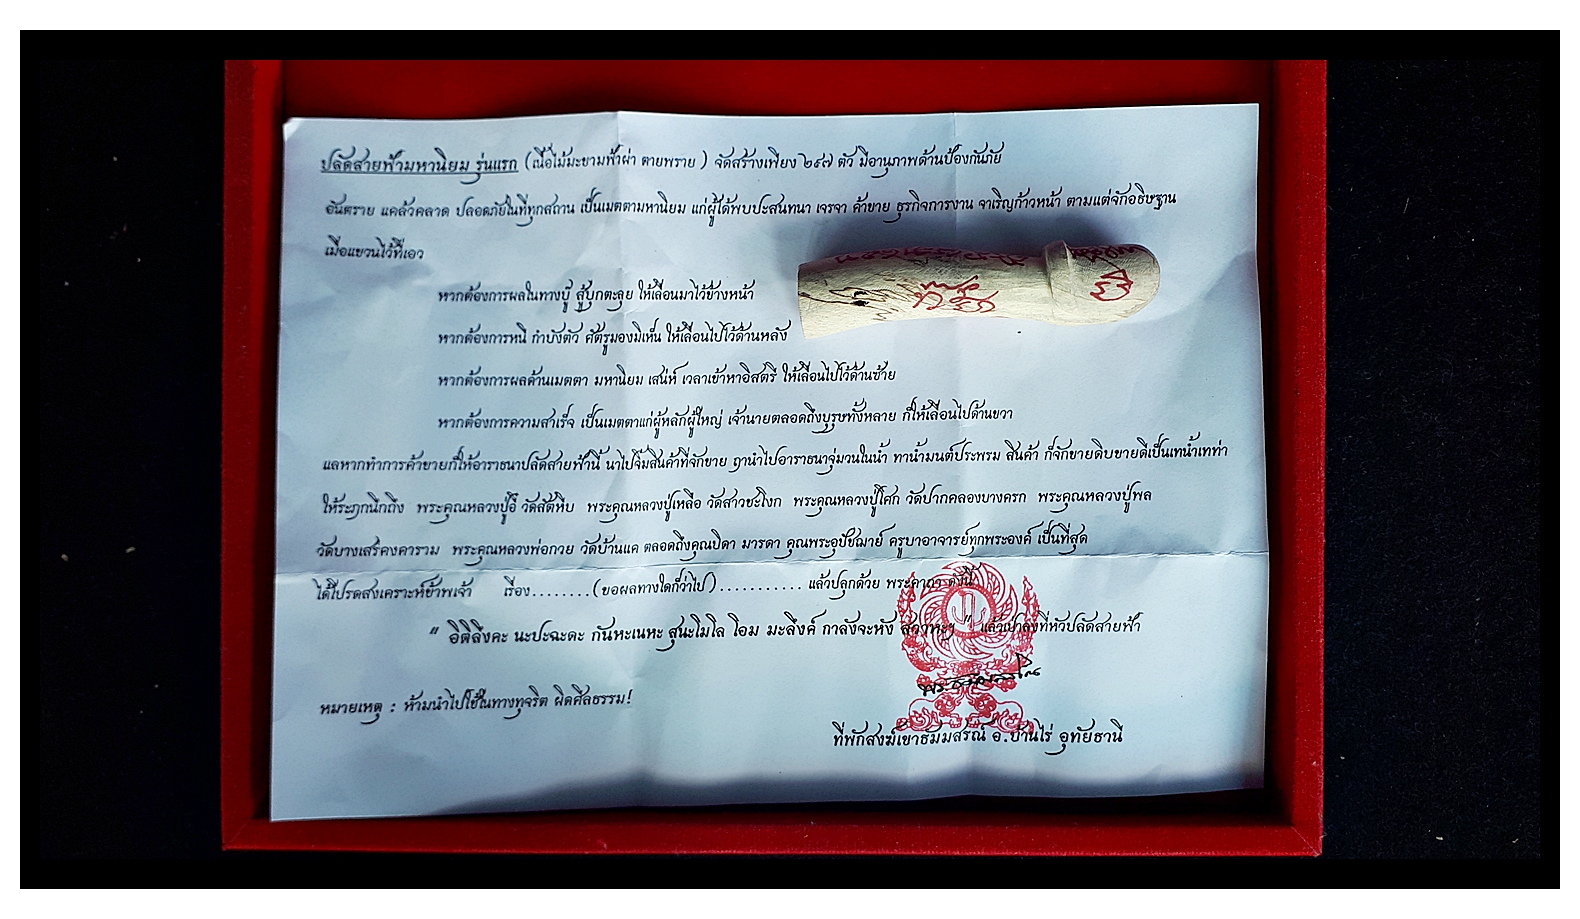 ปลัดสายฟ้ามหานิยม รุ่นแรก (เนื้อไม้มะขามฟ้าผ่า ตายพราย) จัดสร้างเพียง ๒๙๗ ตัว มีอานุภาพด้านป้องกันภัย
อันตราย แคล้วคลาด ปลอดภัยในที่ทุกสถาน เป็นเมตตามหานิยม แก่ผู้ได้พบปะสนทนา เจรจา ค้าขาย ธุรกิจการงาน จาเริญก้าวหน้า ตามแต่จักอธิษฐาน
เมื่อแขวนไว้ที่เอว
หากต้องการผลในทางบู๊ สู้บุกตะลุย ให้เลื่อนมาไว้ข้างหน้า
หากต้องการหนี กำบังตัว ศัตรูมองมิเห็น ให้เลื่อนไปไว้ด้านหลัง
หากต้องการผลด้านเมตตา มหานิยม เสน่ห์ เวลาเข้าหาอิสตรี ให้เลื่อนไปไว้ด้านซ้าย
หากต้องการความสำเร็จ เป็นเมตตาแก่ผู้หลักผู้ใหญ่ เจ้านายตลอดถึงบุรุษทั้งหลาย ก็ให้เลื่อนไปด้านขวา
แลหากทำการค้าขายก็ให้อาราธนาปลัดสายฟ้านี้ นำไปจิ้มสินค้าที่จักขาย ฤานำไปอาราธนาจุ่มวนในน้ำ ทำน้ำมนต์ประพรม สินค้า ก็จักขายดิบขายดีเป็นเทน้ำเทท่า
ให้ระฦกนึกถึง พระคุณหลวงปู่อี๋ วัดสัตหีบ พระคุณหลวงปู่เหลือ วัดสาวชะโงก พระคุณหลวงปู่โศก วัดปากคลองบางครก พระคุณหลวงปู่พล
วัดบางเสร่คงคาราม พระคุณหลวงพ่อกวย วัดบ้านแค ตลอดถึงคุณบิดา มารดา คุณพระอุปัชฌาย์ ครูบาอาจารย์ทุกพระองค์ เป็นที่สุด
ได้โปรดสงเคราะห์ข้าพเจ้า เรื่อง........(ขอผลทางใดก็ว่าไป)........... แล้วปลุกด้วย พระคาถา ดังนี้
" อิติลึงคะ นะปะฉะดะ กันหะเนหะ สุนะโมโล โอม มะลึงค์ กาลังจะหัง สวาหะฯ " แล้วเป่าลงที่หัวปลัดสายฟ้า
หมายเหตุ : ห้ามนำไปใช้ในทางทุจริต ผิดศีลธรรม!
ที่พักสงฆ์เขาธัมมสรณ์ อ.บ้านไร่ อุทัยธานี